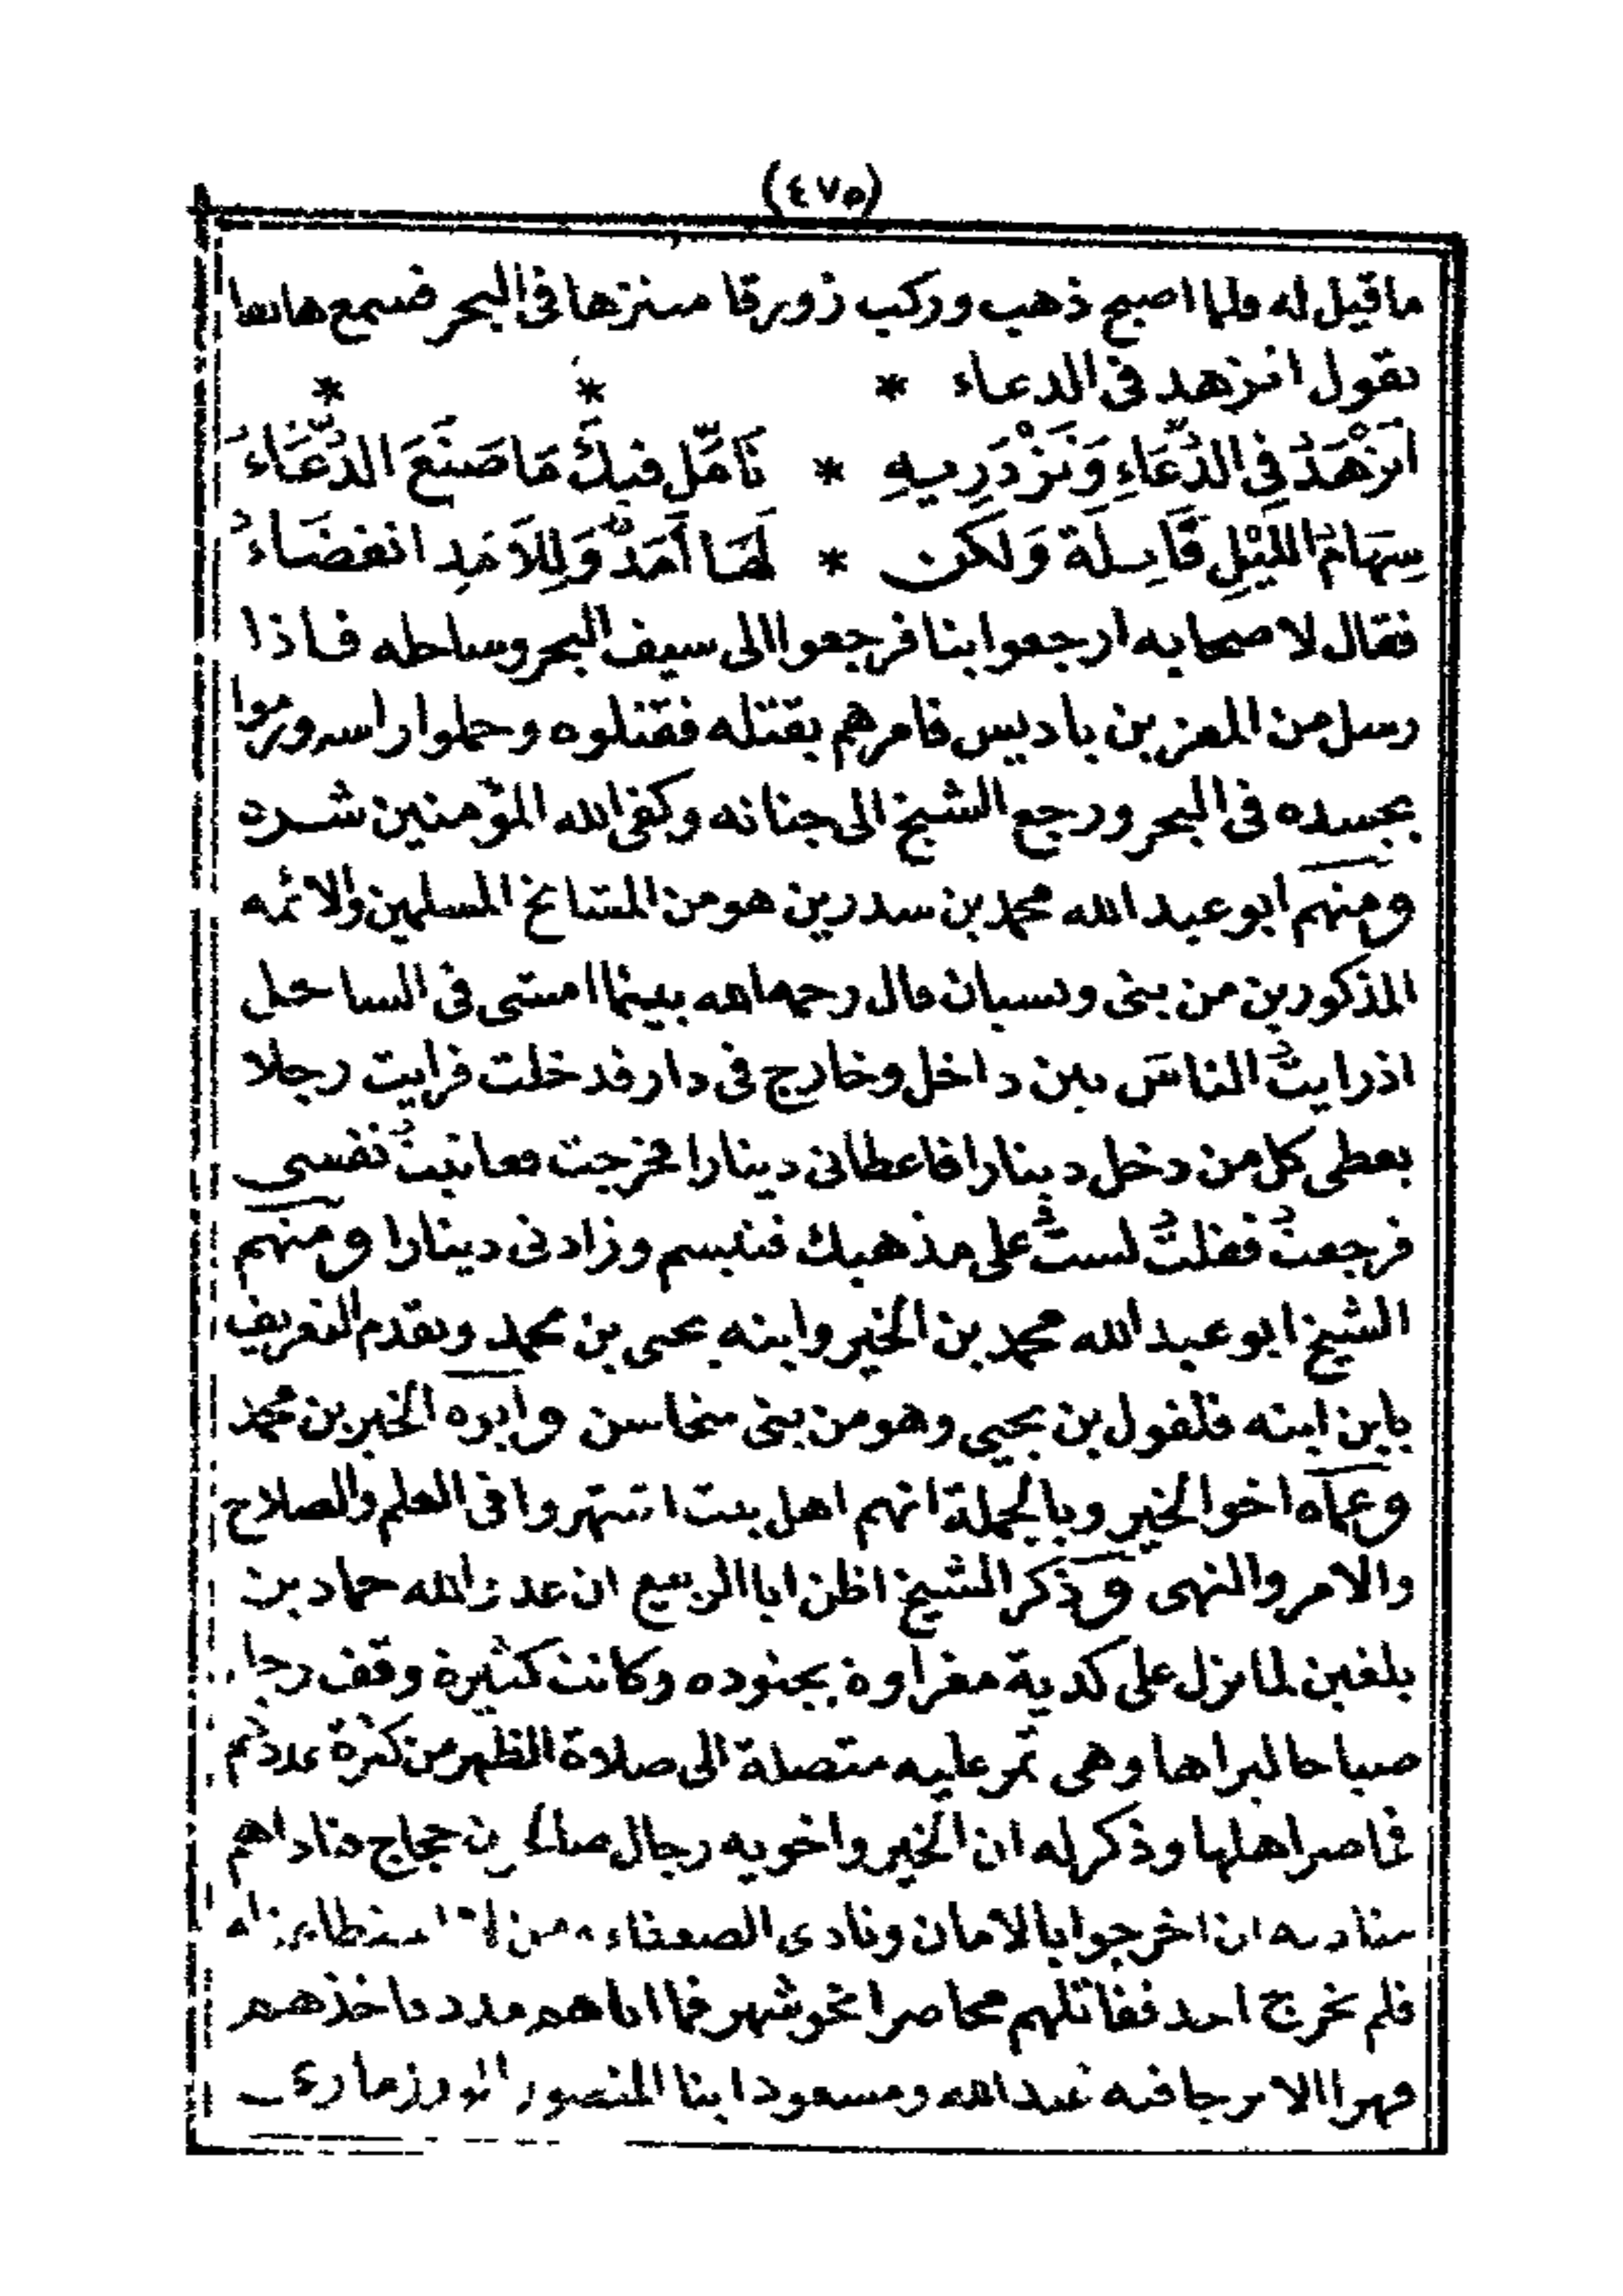 (٤٧٥)
ما قيل له فلما اصبح ذهب وركب زورقا متنزها فى البحر فسمع هاتفا
يقول اتزهد فى الدعاء * * *
اَتَزْهَدُ فِى الدُّعَاءِ وَتَزْدَرِيهِ * تَأمَّل فيكَ مَا صَنَعَ الدُّعَاءُ
سِهَامُ اللَّيْلِ قَاتِلَة وَلَكن * لَهَا أَمَدٌ وَلِلاَمَدِ انقضَاءُ
فقال لاصحابه ارجعوا بنا فرجعوا الى سيف البحر وساحله فاذا
رسل من المعز بن باديس فامرهم بقتله فقتلوه وحملوا راسه ورموا
بجسده فى البحر ورجع الشيخ الى جنانه وكفى الله المؤمنين شره
ومنهم ابو عبد الله محمد بن سدرين هو من المشايخ المسلمين والائمه
المذكورين من بنى ويسيان قال رحمه الله بينما امشى فى الساحل
اذ رايتُ الناسَ بين داخل وخارج فى دار فدخلت فرايت رجلا
يعطى كل من دخل دينارا فاعطانى دينارا فخرجت فعاتبتُ نفسى
فرجعتُ فقلتُ لستُ على مذهبك فتبسم وزادنى دينارا ومنهم
الشيخ ابو عبد الله محمد بن الخير وابنه يحيى بن محمد وتقدم التعريف
بابن ابنه فلفول بن يحيى وهو من بنى منخاسن وابره الخير بن محمد
وعماه اخوا الخير وبالجملة انهم اهل بيت اشتهروا فى العلم والصلاح
والامر والنهى وذكر الشيخ اظن ابا الربيع ان عدو الله حماد بن
بلغين لما نزل على كدية مغراوة بجنوده وكانت كثيرة وقف رجل
صباحا ليراها وهى تمر عليه متصلة الى صلاة الظهر من كثرة عددهم
فحاصر اهلها وذكر له ان الخير واخويه رجال صالحون حجاج فناداهم
مناديه ان اخرجوا بالامان ونادى الضعفاء من
فلم يخرج احد فقاتلهم محاصرا نحو شهر فما اتاهم مدد فاخذهم
قهرا الا من جا فيه عبد الله ومسعود ابنا المنصور